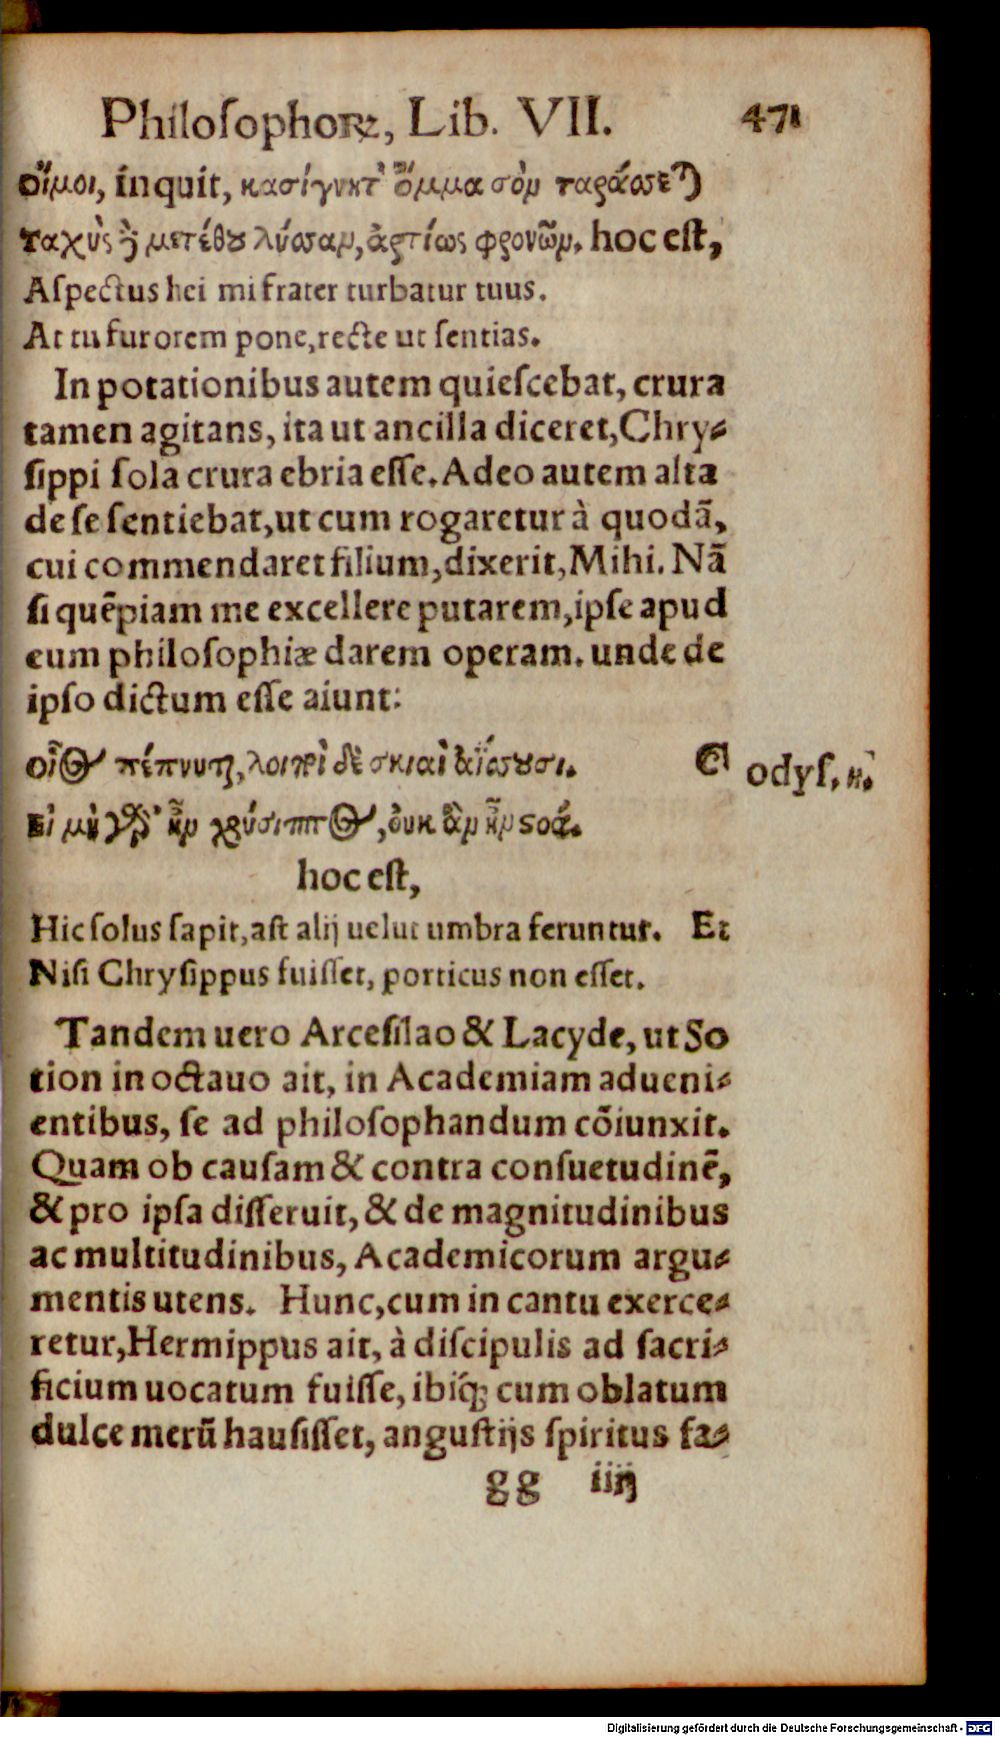 Philoſophoꝝ, Lib. VII. 471
οἴμοι, inquit, κασίγνητ' ὄμμα σὸν ταράσσεται
ταχὺς δὲ μετέθου λύσσαν, ἀρτίως φρονῶν. hoc eſt,
Aſpectus hei mi frater turbatur tuus.
At tu furorem pone, recte ut ſentias.
In potationibus autem quieſcebat, crura
tamen agitans, ita ut ancilla diceret, Chry⸗
ſippi ſola crura ebria eſſe. Adeo autem alta
de ſe ſentiebat, ut cum rogaretur à quodã,
cui commendaret filium, dixerit, Mihi. Nã
ſi quẽpiam me excellere putarem, ipſe apud
eum philoſophiæ darem operam. unde de
ipſo dictum eſſe aiunt:
οἶος πέπνυται, λοιποὶ δὲ σκιαὶ ἀΐσσουσι. Et odyſ. κ.
Εἰ μὴ γὰρ ἦν χρύσιππος, ὀυκ ἂν ἦν στοά.
hoc eſt,
Hic ſolus ſapit, aſt alij uelut umbra feruntur. Et
Niſi Chryſippus fuiſſet, porticus non eſſet.
Tandem uero Arceſilao & Lacyde, ut So
tion in octauo ait, in Academiam adueni⸗
entibus, ſe ad philoſophandum cõiunxit.
Quam ob cauſam & contra conſuetudinẽ,
& pro ipſa diſſeruit, & de magnitudinibus
ac multitudinibus, Academicorum argu⸗
mentis utens. Hunc, cum in cantu exerce⸗
retur, Hermippus ait, à diſcipulis ad ſacri⸗
ficium uocatum fuiſſe, ibiq́ꝫ cum oblatum
dulce merũ hauſiſſet, anguſtijs ſpiritus fa⸗
gg iiij
Digitalisierung gefördert durch die Deutsche Forschungsgemeinschaft - DFG